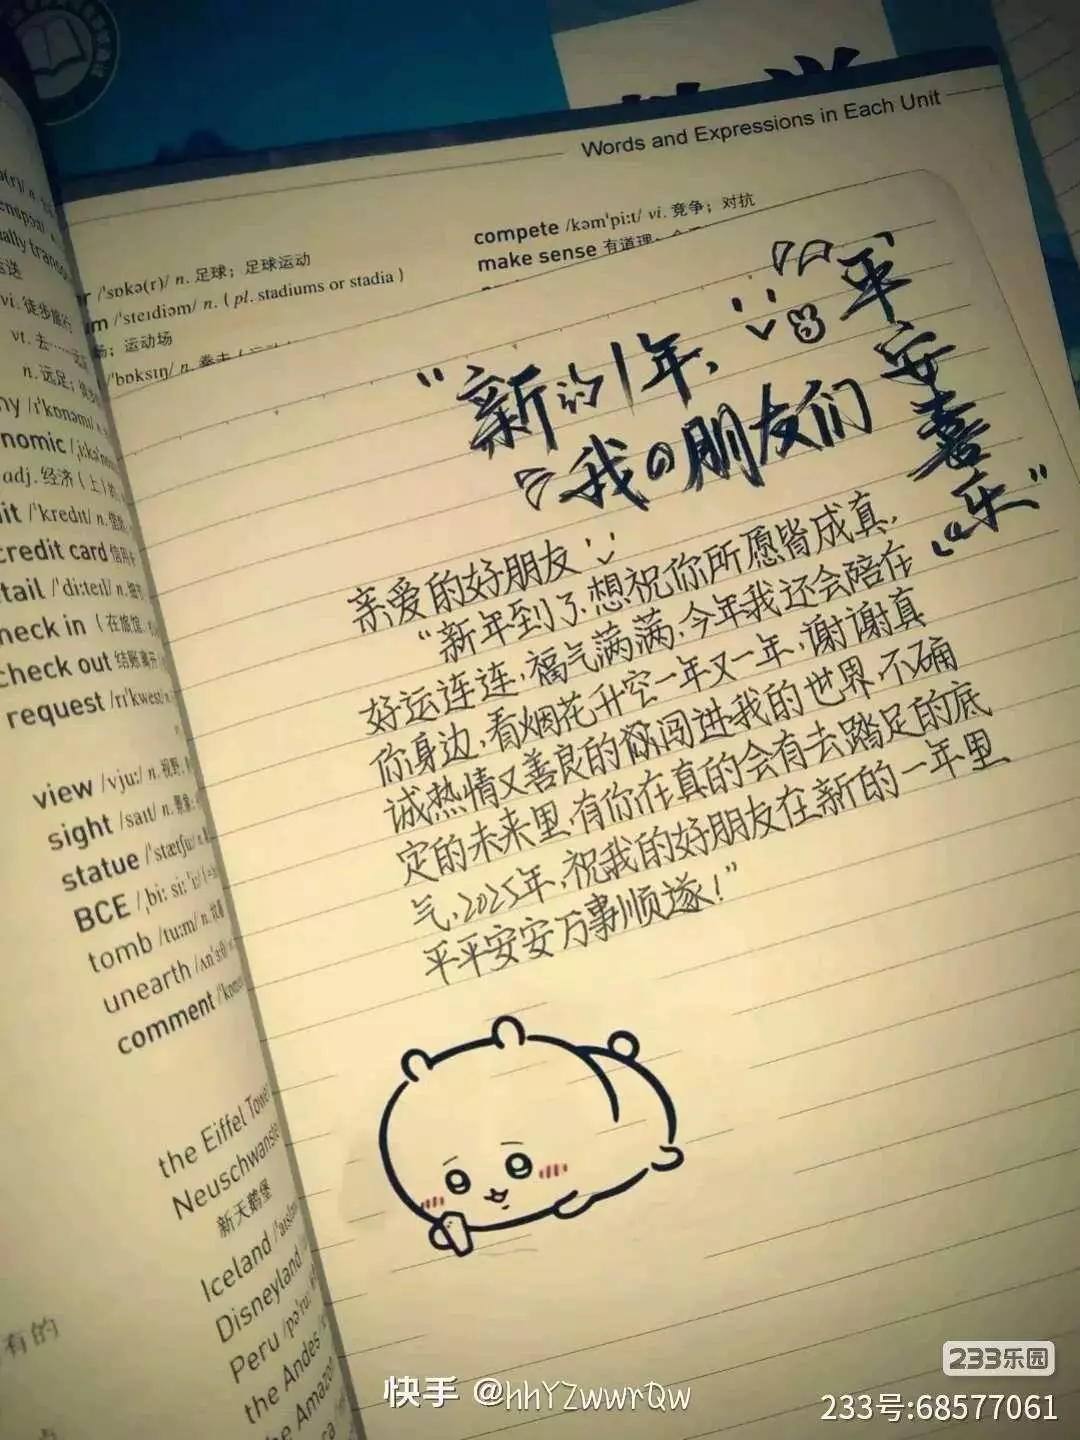 Words and Expressions in Each Unit
compete /kəmˈpiːt/ vi. 竞争；对抗
make sense 有道理；
/ˈsɒkə(r)/ n. 足球；足球运动
/ˈsteɪdiəm/ n. ( pl. stadiums or stadia )
场；运动场
/ˈbɒksɪŋ/ n. 拳击
vi. 徒步旅行
vt. 去……远足
n. 远足；
/ɪˈkɒnəmi/
nomic
adj. 经济（上）的
/ˈkredɪt/ n.
credit card 信用卡
/ˈdiːteɪl/ n. 细节
check in （在旅馆
check out 结账离开
request /rɪˈkwest/ n.
view /vjuː/ n. 视野
sight /saɪt/ n. 景象
statue /ˈstætʃuː/
BCE /ˌbiː siː ˈiː/
tomb /tuːm/ n. 坟墓
unearth /ʌnˈɜːθ/
comment
the Eiffel Tower
Neuschwanste
新天鹅堡
Iceland /ˈaɪslənd
Disneyland
Peru /pəˈruː/
the Andes
the Amazon
有的
“新的1年，
我の朋友们
平安喜乐”
亲爱的好朋友
“新年到了，想祝你所愿皆成真，
好运连连，福气满满，今年我还会陪在
你身边，看烟花升空一年又一年，谢谢真
诚热情又善良的你闯进我的世界，不确
定的未来里，有你在真的会有去踏足的底
气，2025年，祝我的好朋友在新的一年里
平平安安万事顺遂！”
快手 @hhYZwwrQw
233乐园
233号:68577061